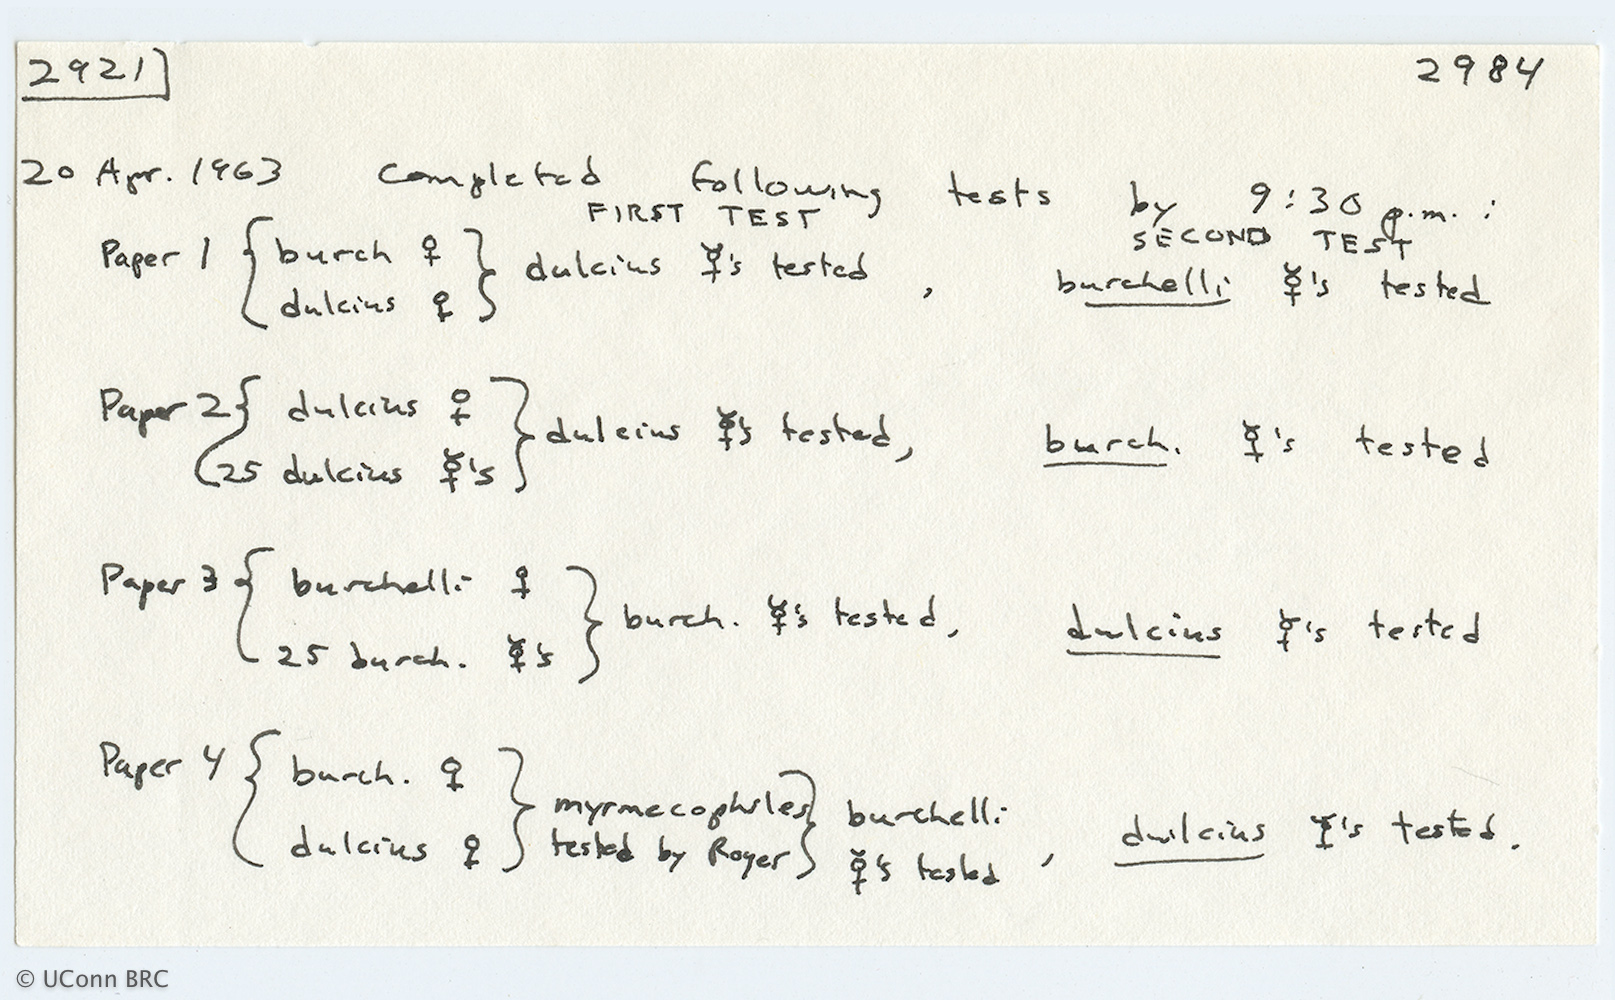 2921 2984
20 Apr. 1963 Completed following tests by 9:30 p.m. :
FIRST TEST SECOND TEST
Paper 1 { burch ♀ } dulcius ☿'s tested , burchelli ☿'s tested
dulcius ♀
Paper 2 { dulcius ♀ } dulcius ☿'s tested, burch. ☿'s tested
25 dulcius ☿'s
Paper 3 { burchelli ♀ } burch. ☿'s tested, dulcius ☿'s tested
25 burch. ☿'s
Paper 4 { burch. ♀ } myrmecophiles } burchelli , dulcius ☿'s tested.
dulcius ♀ tested by Roger ☿'s tested
© UConn BRC